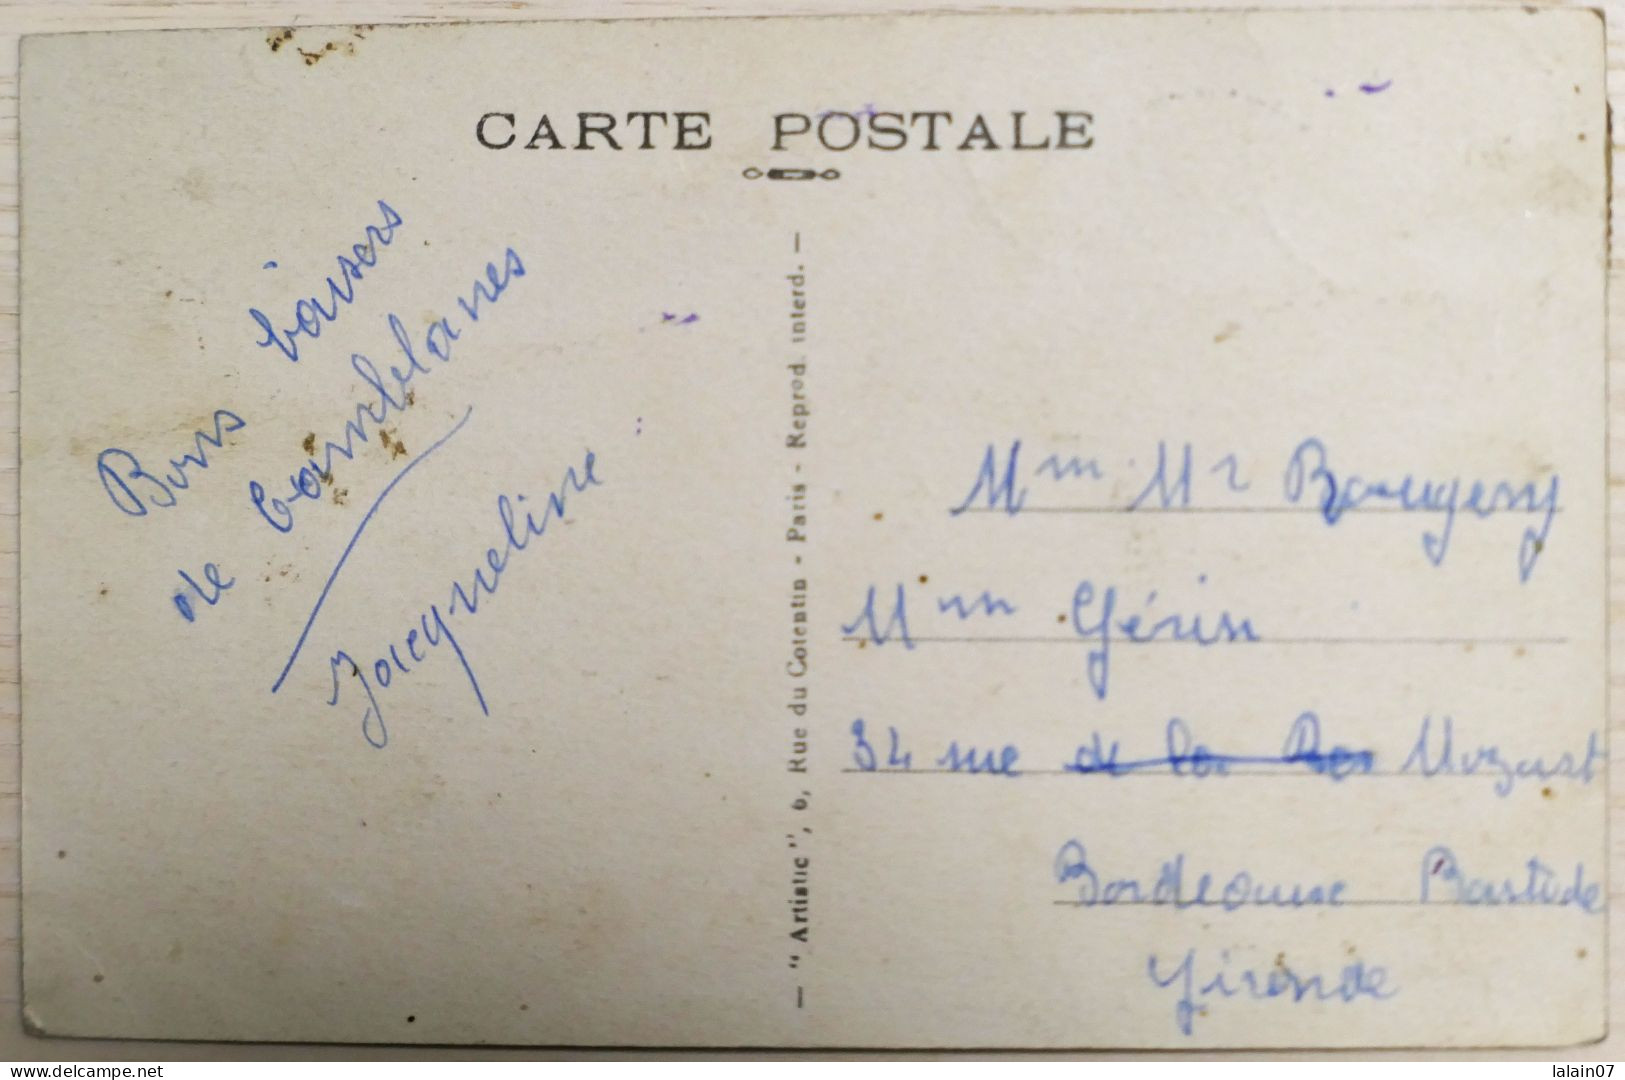 CARTE POSTALE
Bons baisers
de Camblanes
Jacqueline
— "Artistic", 6, Rue du Cotentin - Paris - Reprod. interd. —
Mm Mr Baugery
Mm Gérin
34 rue de la Mozart
Bordeaux Bastide
Gironde
delcampe.net
lalain07